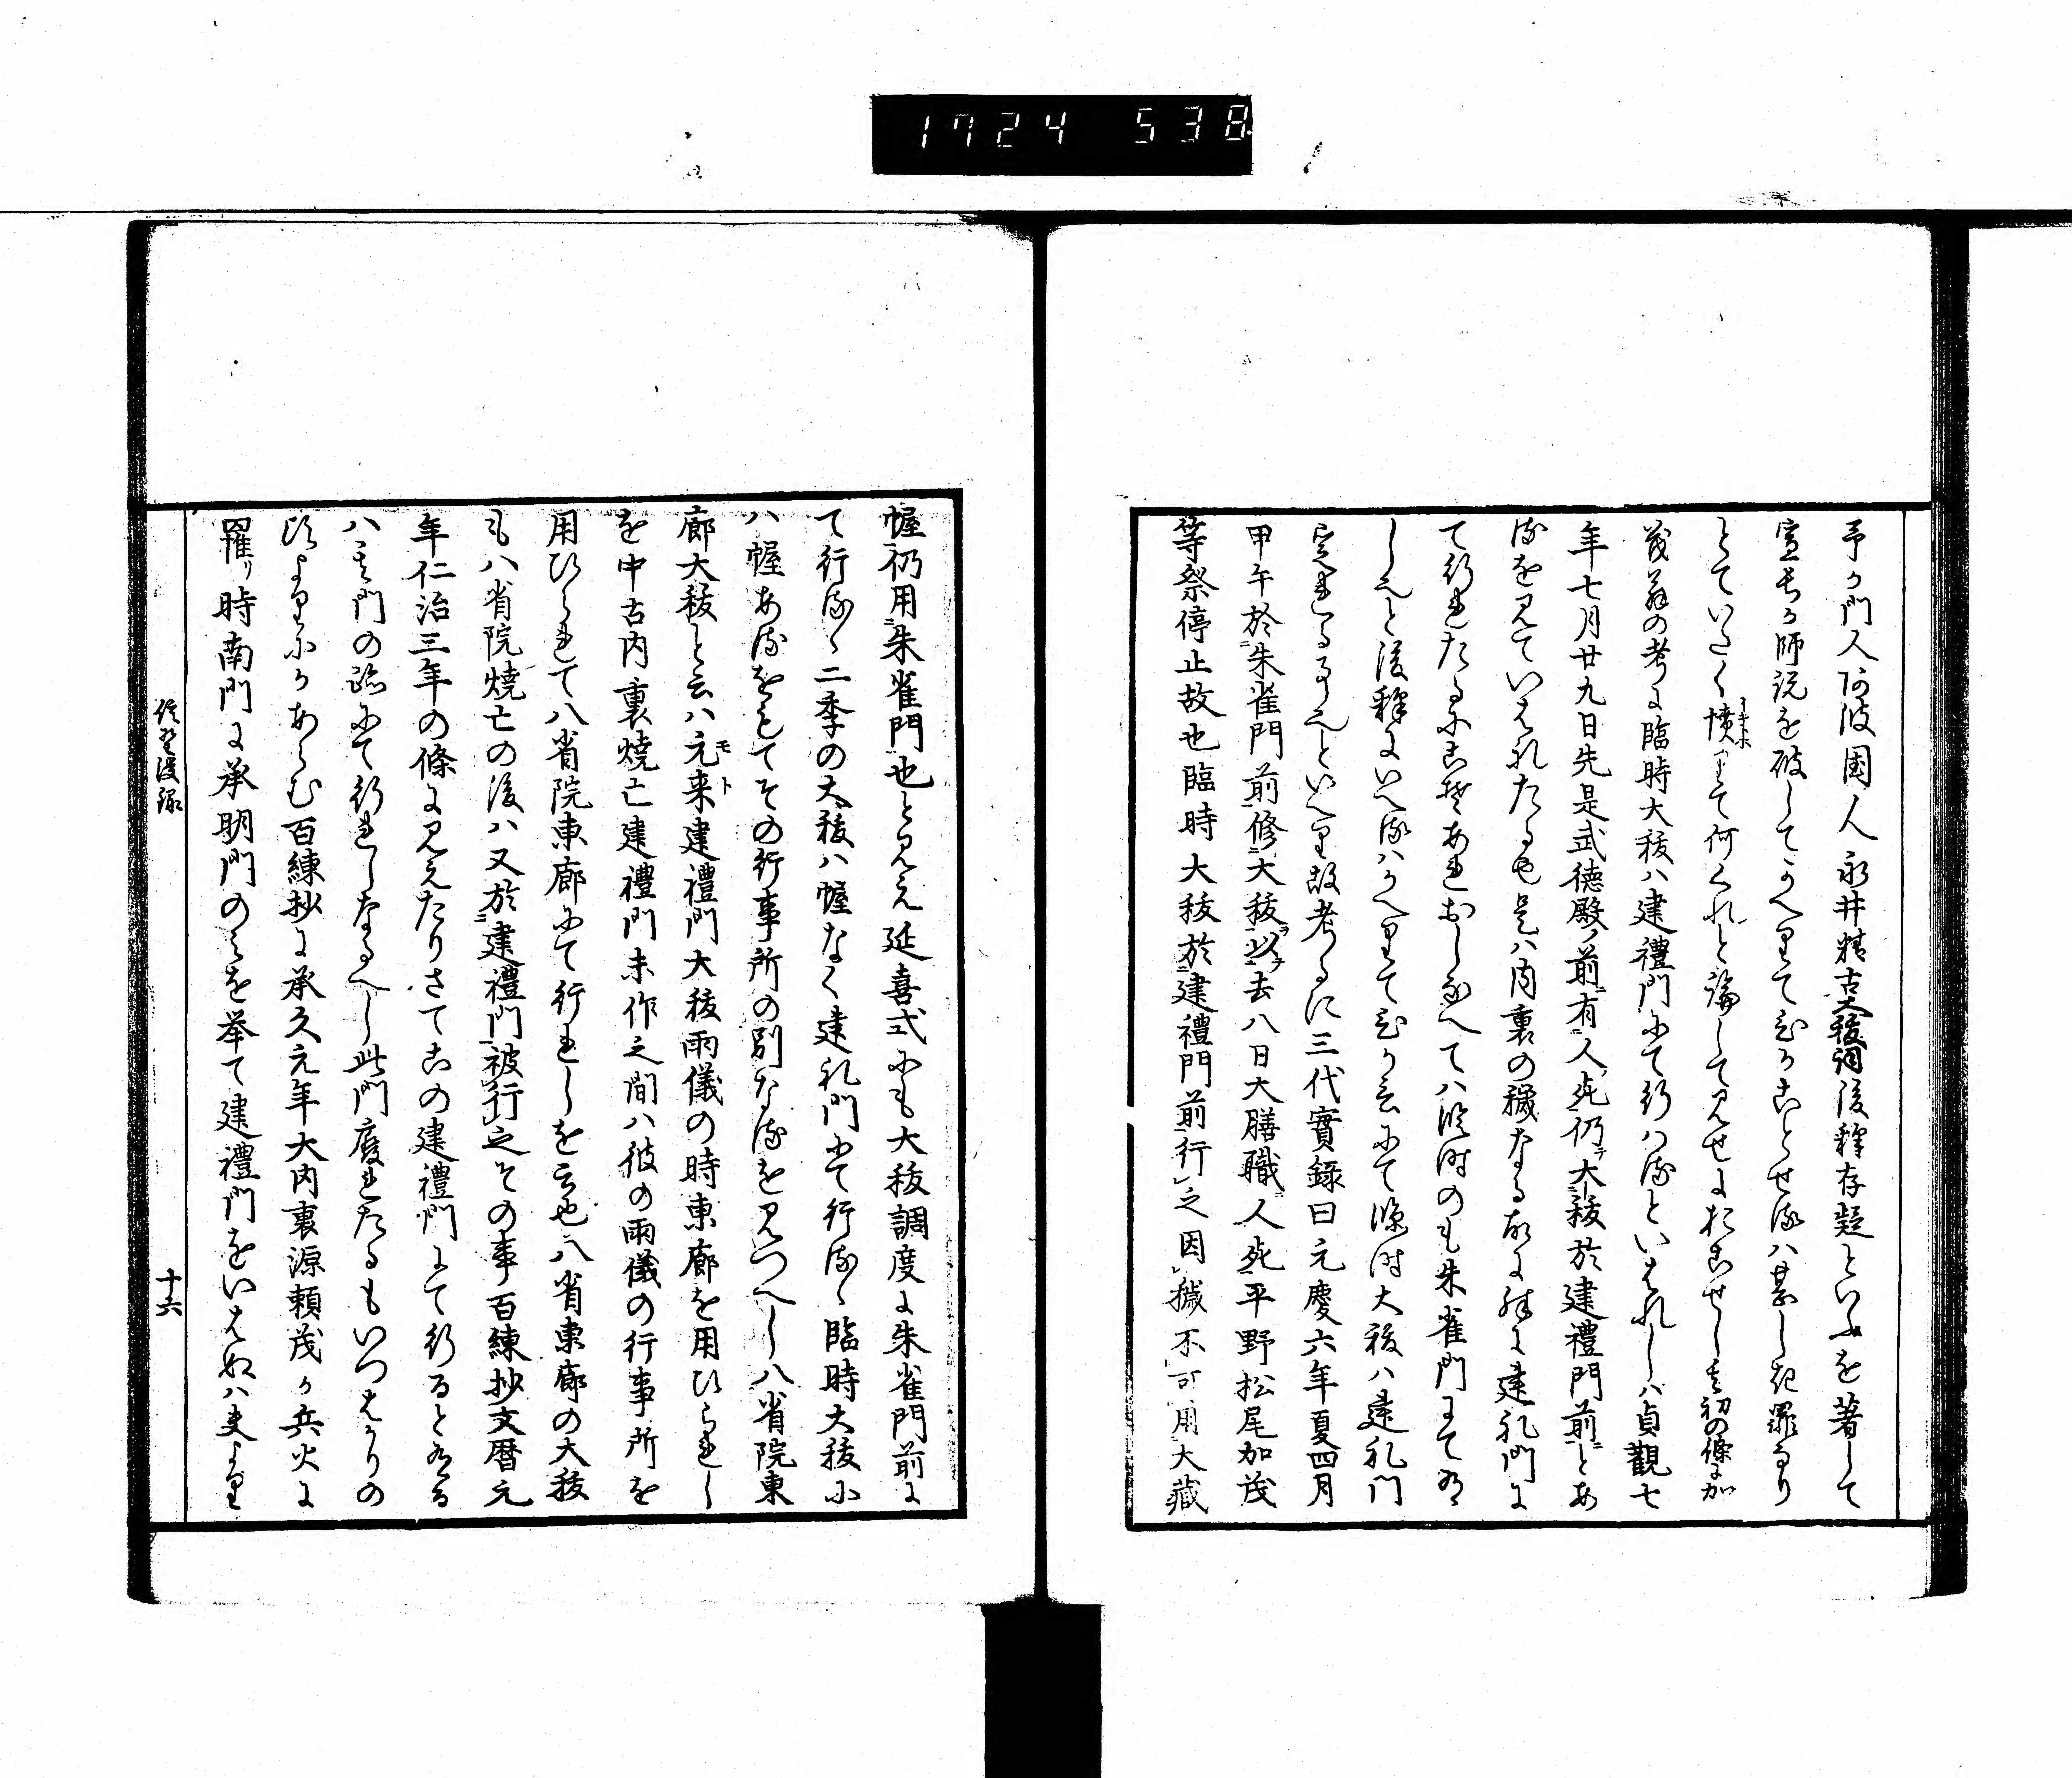 1724 538
予が門人阿波国人永井精古大祓詞後釋存疑といふを著して
宣長が師説を破してかへりてひがことせるハ甚しき罪なり
とていたく憤りて何くれと論して見せにおこせし其初の條に加
茂翁の考に臨時大祓ハ建禮門にて行ハるといはれしハ貞觀七
年七月廿九日先是武德殿ノ前ニ有人死仍テ大祓於建禮門前ニとあ
るを見ていはれたるも是ハ内裏の穢なる故に殊に建礼門に
て行れたるにこそあれおしなへてハ臨時のも朱雀門にて有
しこと後釋にいへるハかへりてひが言にて臨時大祓ハ建礼門
定れる事也といへり故考るに三代實録曰元慶六年夏四月
甲午於朱雀門前修大祓以去八日大膳職人死平野松尾加茂
等祭停止故也臨時大祓於建禮門前行之因穢不可用大藏
幄仍用朱雀門也と見え延喜式にも大祓調度に朱雀門前に
て行るゝ二季の大祓ハ幄なく建礼門にて行るゝ臨時大祓に
ハ幄あるをもてその行事所の別なるを見つへし八省院東
廊大祓と云ハ元来建禮門大祓雨儀の時東廊を用ひられし
を中古内裏燒亡建禮門未作之間ハ彼の雨儀の行事所を
用ひられて八省院東廊にて行れしを云也八省東廊の大祓
も八省院燒亡の後ハ又於建禮門被行之その事百練抄文暦元
年仁治三年の條に見えたりさてこの建禮門にて行ると有る
ハ其門の跡にて行れしなるへし此門廢れたるもいつはかりの
頃よりにかあらむ百練抄に承久元年大内裏源頼茂が兵火に
罹り時南門に承明門のみを挙て建禮門をいはぬハ夫より
後録
十六